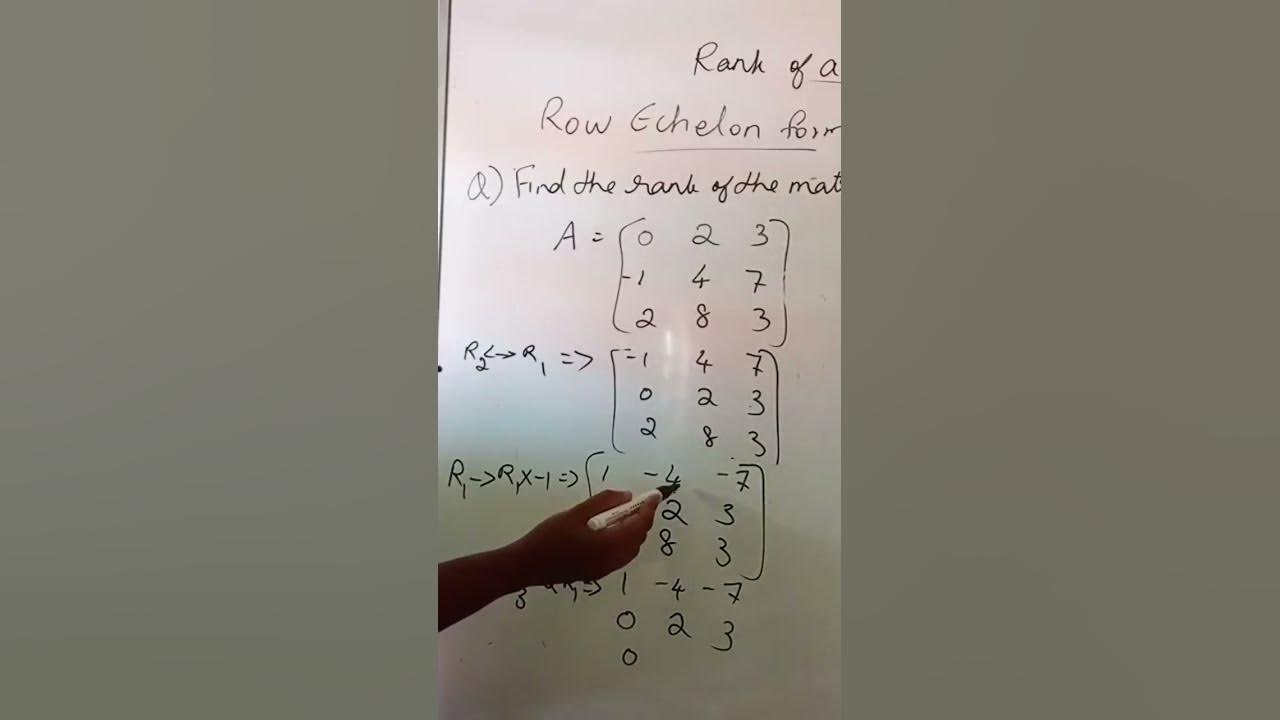 Rank of a
Row Echelon form
Q) Find the rank of the mat
A = [ 0 2 3
-1 4 7
2 8 3 ]
R2 ↔ R1 => [ -1 4 7
0 2 3
2 8 3 ]
R1 → R1 x -1 => [ 1 -4 -7
2 3
8 3 ]
3 R1 => 1 -4 -7
0 2 3
0